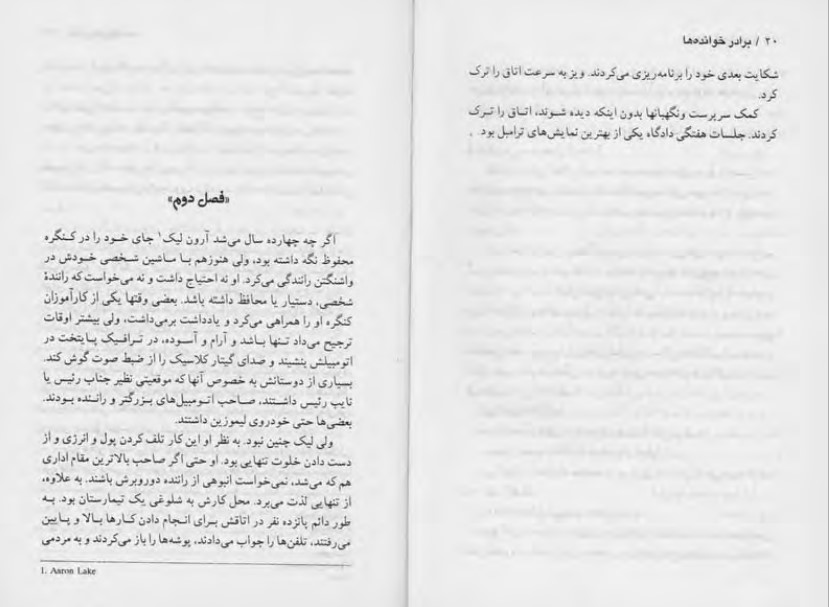 ۲۰ / برادر خوانده‌ها
شکایت بعدی خود را برنامه‌ریزی می‌کردند. ویز به سرعت اتاق را ترک
کرد.
کمک سرپرست ونگهبانها بدون اینکه دیده شوند، اتاق را ترک
کردند. جلسات هفتگی دادگاه یکی از بهترین نمایش‌های ترامبل بود.
«فصل دوم»
اگر چه چهارده سال می‌شد آرون لیک۱ جای خود را در کنگره
محفوظ نگه داشته بود، ولی هنوزهم با ماشین شخصی خودش در
واشنگتن رانندگی می‌کرد. او نه احتیاج داشت و نه می‌خواست که رانندهٔ
شخصی، دستیار یا محافظ داشته باشد. بعضی وقتها یکی از کارآموزان
کنگره او را همراهی می‌کرد و یادداشت برمی‌داشت، ولی بیشتر اوقات
ترجیح می‌داد تنها باشد و آرام و آسوده، در ترافیک پایتخت در
اتومبیلش بنشیند و صدای گیتار کلاسیک را از ضبط صوت گوش کند.
بسیاری از دوستانش به خصوص آنها که موقعیتی نظیر جناب رئیس یا
نایب رئیس داشتند، صاحب اتومبیل‌های بزرگتر و راننده بودند.
بعضی‌ها حتی خودروی لیموزین داشتند.
ولی لیک چنین نبود. به نظر او این کار تلف کردن پول و انرژی و از
دست دادن خلوت تنهایی بود. او حتی اگر صاحب بالاترین مقام اداری
هم که می‌شد، نمی‌خواست انبوهی از راننده دوروبرش باشند. به علاوه،
از تنهایی لذت می‌برد. محل کارش به شلوغی یک تیمارستان بود. به
طور دائم پانزده نفر در اتاقش برای انجام دادن کارها بالا و پایین
می‌رفتند، تلفن‌ها را جواب می‌دادند، پوشه‌ها را باز می‌کردند و به مردمی
1. Aaron Lake